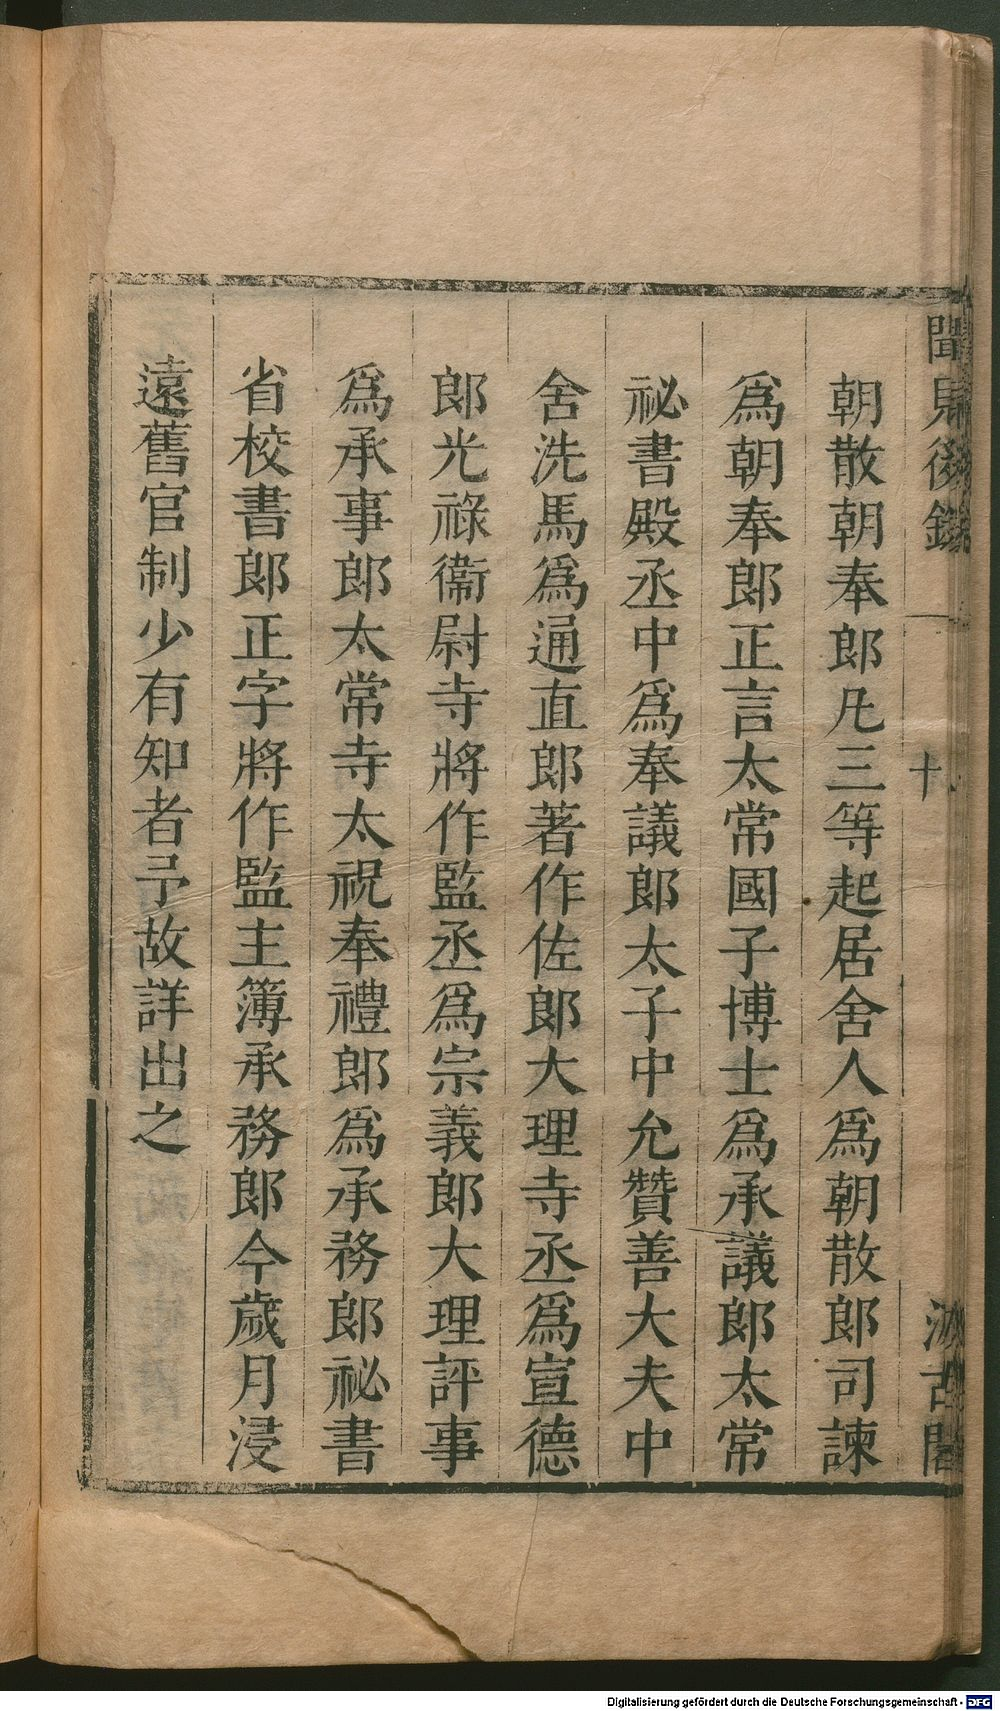 聞見後錄
十
汲古閣
朝散朝奉郎凡三等起居舍人爲朝散郎司諫
爲朝奉郎正言太常國子博士爲承議郎太常
祕書殿丞中爲奉議郎太子中允贊善大夫中
舍洗馬爲通直郎著作佐郎大理寺丞爲宣德
郎光祿衞尉寺將作監丞爲宗義郎大理評事
爲承事郎太常寺太祝奉禮郎爲承務郎祕書
省校書郎正字將作監主簿承務郎今歲月浸
遠舊官制少有知者予故詳出之
Digitalisierung gefördert durch die Deutsche Forschungsgemeinschaft - DFG